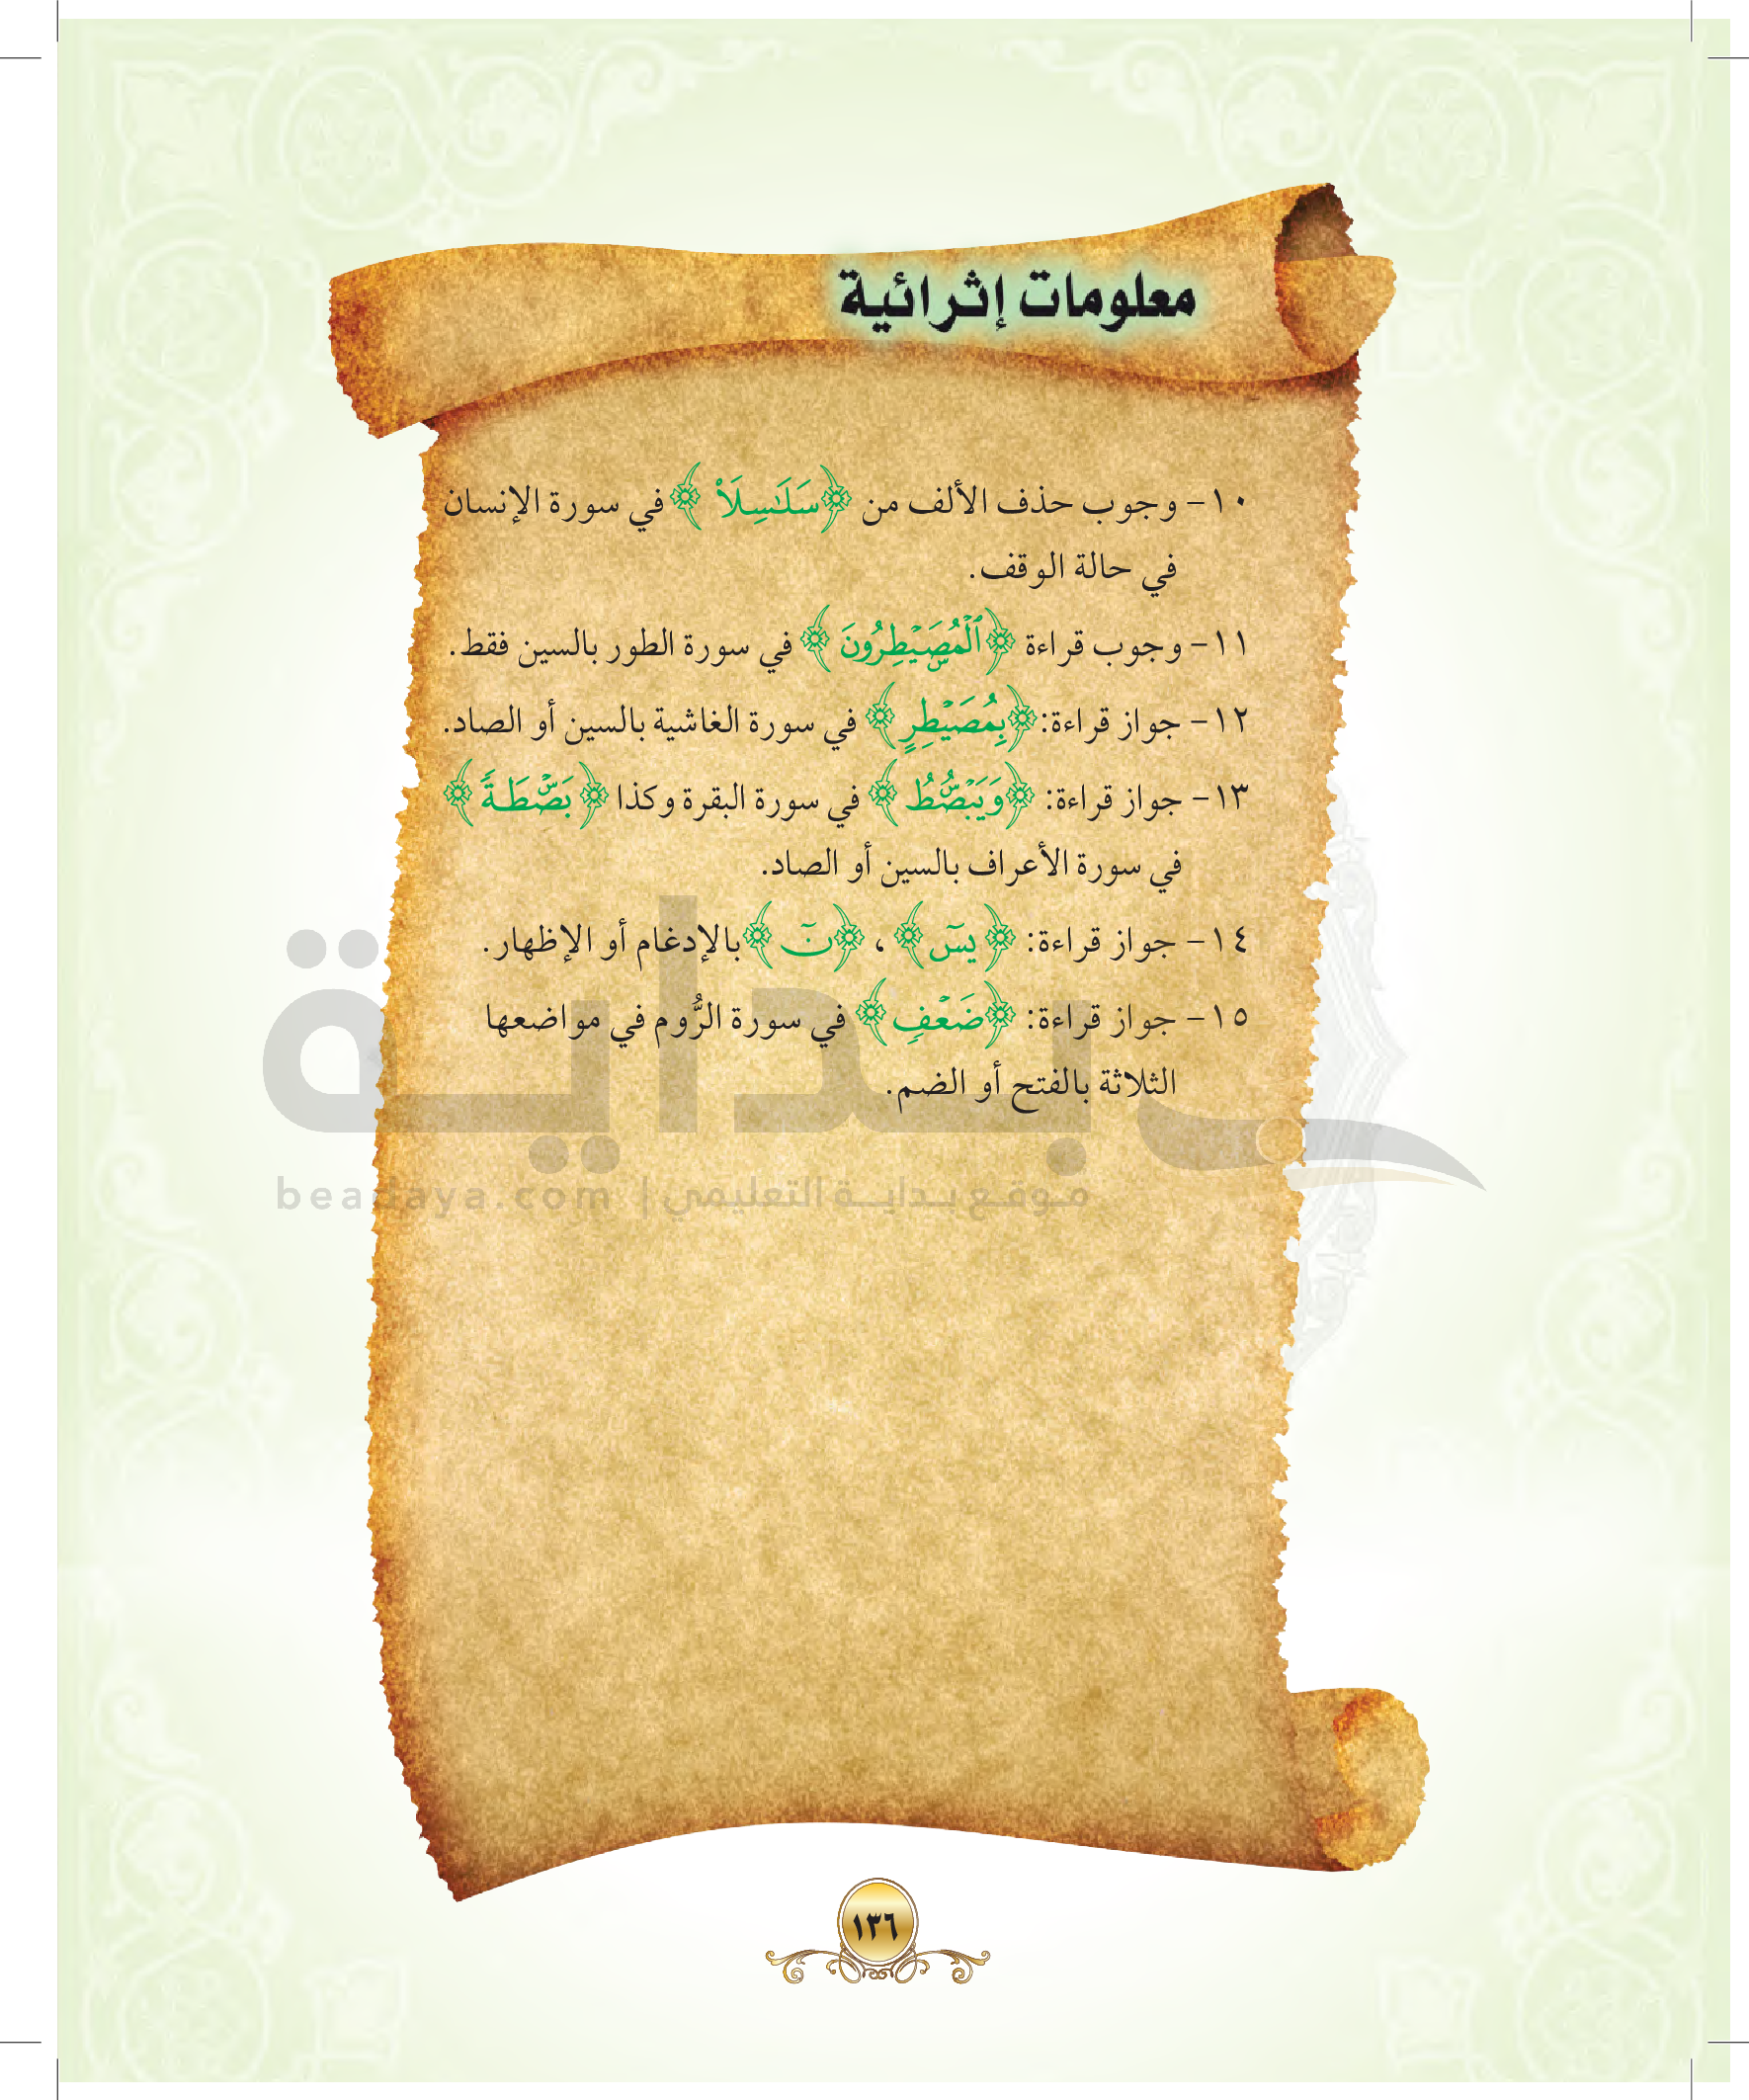 معلومات إثرائية
١٠- وجوب حذف الألف من ﴿سَلَٰسِلَاْ﴾ في سورة الإنسان
في حالة الوقف.
١١- وجوب قراءة ﴿ٱلْمُصَۜيْطِرُونَ﴾ في سورة الطور بالسين فقط.
١٢- جواز قراءة: ﴿بِمُصَيْطِرٍ﴾ في سورة الغاشية بالسين أو الصاد.
١٣- جواز قراءة: ﴿وَيَبْصُۜطُ﴾ في سورة البقرة وكذا ﴿بَصْۜطَةً﴾
في سورة الأعراف بالسين أو الصاد.
١٤- جواز قراءة: ﴿يسٓ﴾ ، ﴿نٓ﴾ بالإدغام أو الإظهار.
١٥- جواز قراءة: ﴿ضَعْفٍ﴾ في سورة الرُّوم في مواضعها
الثلاثة بالفتح أو الضم.
بداية
موقع بداية التعليمي | beadaya.com
١٣٦